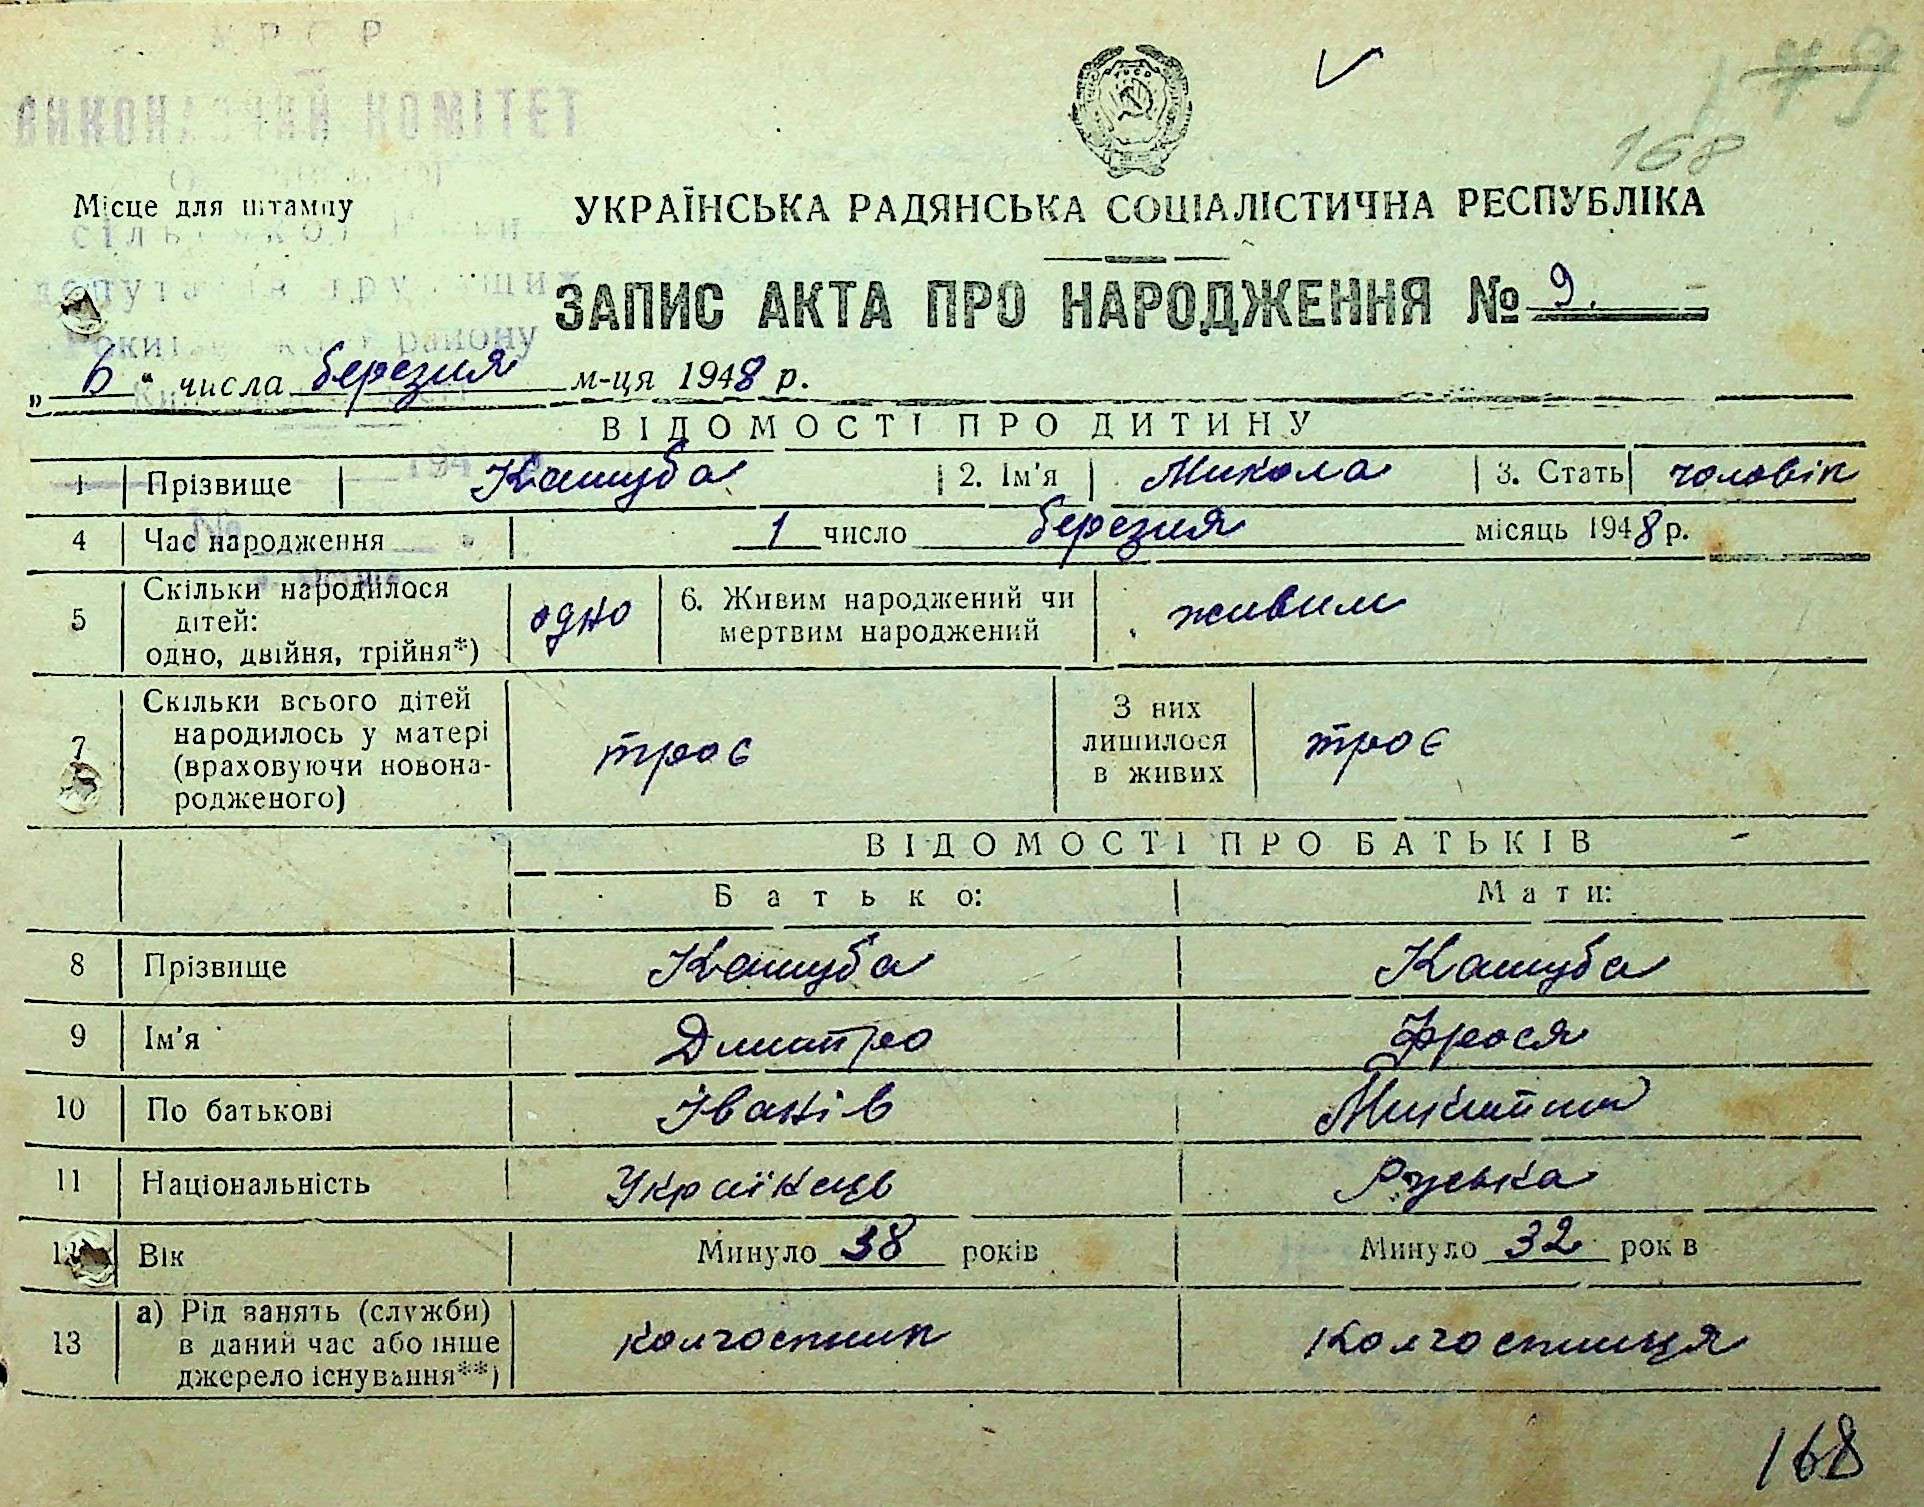 УРСР
ВИКОНАВЧИЙ КОМІТЕТ
179
168
Місце для штампу
УКРАЇНСЬКА РАДЯНСЬКА СОЦІАЛІСТИЧНА РЕСПУБЛІКА
сільської Ради
депутатів трудящих
ЗАПИС АКТА ПРО НАРОДЖЕННЯ № 9.
району
„ 6 “ числа березня м-ця 1948 р.
ВІДОМОСТІ ПРО ДИТИНУ
1 Прізвище Кашуба 2. Ім'я Микола 3. Стать чоловік
194
4 Час народження 1 число березня місяць 1948 р.
№
5 Скільки народилося дітей: одно, двійня, трійня*) одно 6. Живим народжений чи мертвим народжений живим
7 Скільки всього дітей народилось у матері (враховуючи новона-родженого) троє З них лишилося в живих троє
ВІДОМОСТІ ПРО БАТЬКІВ
Батько: Мати:
8 Прізвище Кашуба Кашуба
9 Ім'я Дмитро Фрося
10 По батькові Іванів
11 Національність Українець Руська
12 Вік Минуло 38 років Минуло 32 рок в
13 а) Рід занять (служби) в даний час або інше джерело існування**) колгоспник Колгоспниця
168